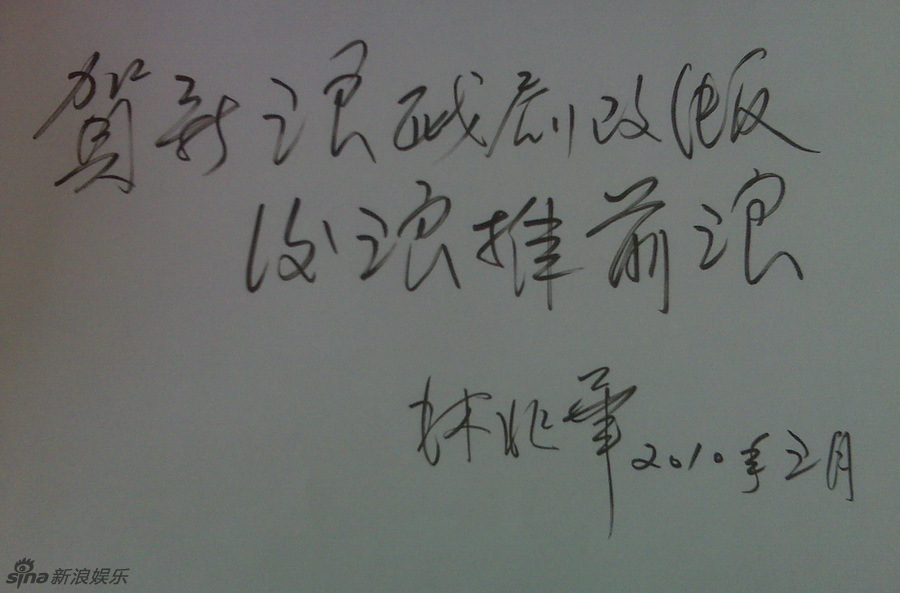 賀新浪戏剧改版
后浪推前浪
林兆華 2010年二月
sina新浪娱乐